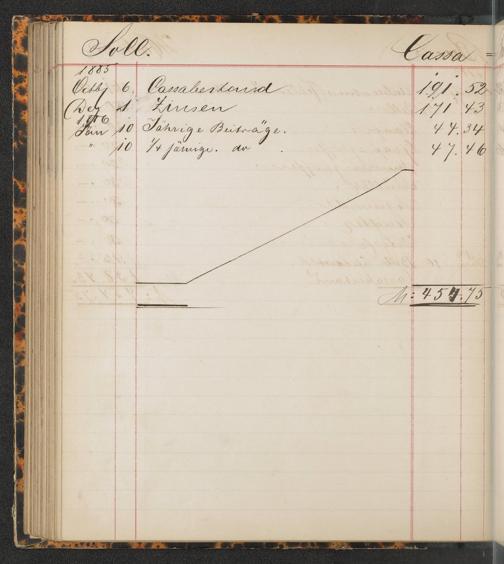 Soll. Cassa
1885
Octb 6. Cassabestand 191. 52
Dez 1 Zinsen 171 43
1886
Jan 10 Jährige Beiträge. 44. 34
" 10 1/4 järige. do 47. 46
M: 454.75